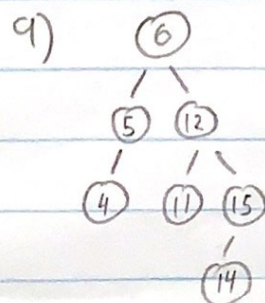 9)
6
5 12
4 11 15
14